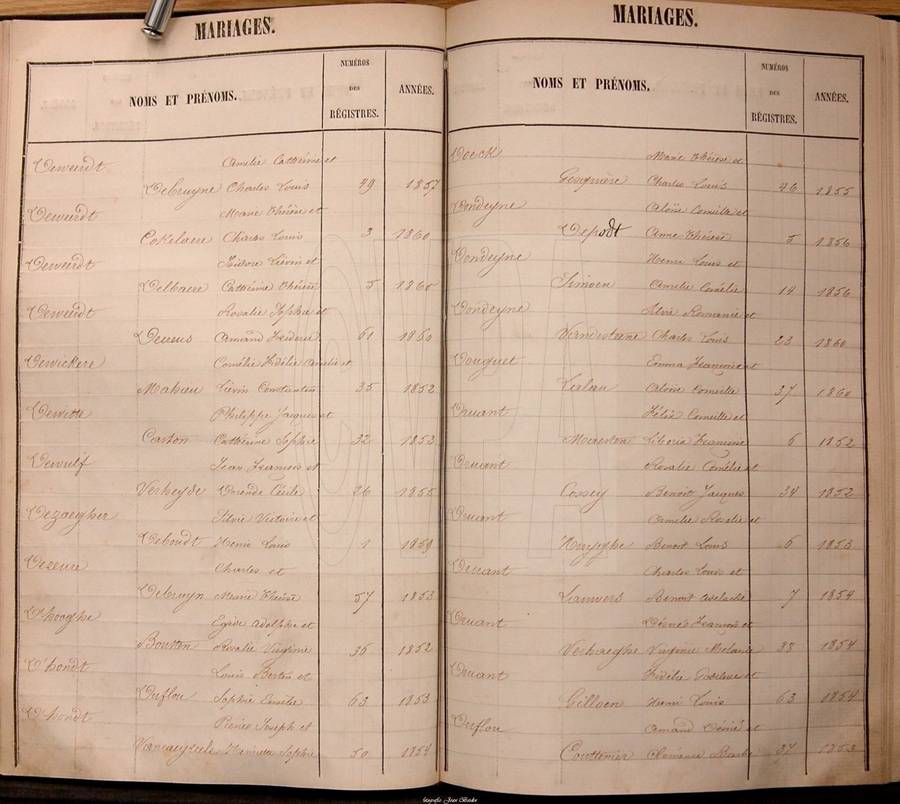 MARIAGES.
NOMS ET PRÉNOMS.
NUMÉROS
DES
RÉGISTRES.
ANNÉES.
Deweirdt
Amélie Cathérine et
Debruyne Charles Louis 49 1857
Deweirdt
Marie Thérèse et
Cokelaere Charles Louis 3 1860
Deweirdt
Isidore Liévin et
Delbaere Cathérine Thérèse 5 1860
Deweirdt
Rosalie Sophie et
Amand 61 1850
Dewickere
Comélie Fidélie Amélie et
Mahieu Liévin Constantin 35 1852
Dewitte
Philippe Jacques et
Carton Cathérine Sophie 32 1853
Dewulf
Jean François et
Verheyde Cécile 26 1855
Dezaegher
Silvie Victoire et
Debondt Henri Louis 1 1859
Dezeure
Charles et
Debruyn Marie Thérèse 57 1853
D'hooghe
Adolphe et
Boutton Rosalie Virginie 36 1852
D'hondt
Louis et
Duflou Sophie Emilie 63 1853
D'hondt
Joseph et
Sophie 50 1854
MARIAGES.
NOMS ET PRÉNOMS.
NUMÉROS
DES
RÉGISTRES.
ANNÉES.
Doeck
Marie Thérèse et
Gesquière Charles Louis 46 1855
Dondeyne
Aloïse Camille et
Depodt Anne Thérèse 5 1856
Dondeyne
Henri Louis et
Simoen Amélie Comélie 14 1856
Dondeyne
Silvie Romanie et
Charles Louis 23 1860
Douguet
Emma Françoise et
Aloïse Camille 37 1860
Druant
Félix Camille et
Liboria Françoise 6 1852
Druant
Rosalie Comélie et
Cossey Benoit Jacques 34 1852
Druant
Amélie Rosalie et
Huyghe Benoit Louis 6 1853
Druant
Charles Louis et
Lauwers Benoit Adelaide 7 1854
Druant
Désiré François et
Verhaeghe Virginie Mélanie 38 1854
Druant
Fidélie et
Gilloen Henri Louis 63 1854
Duflou
Amand Désiré et
Couttenier Clémence Barbe 37 1853